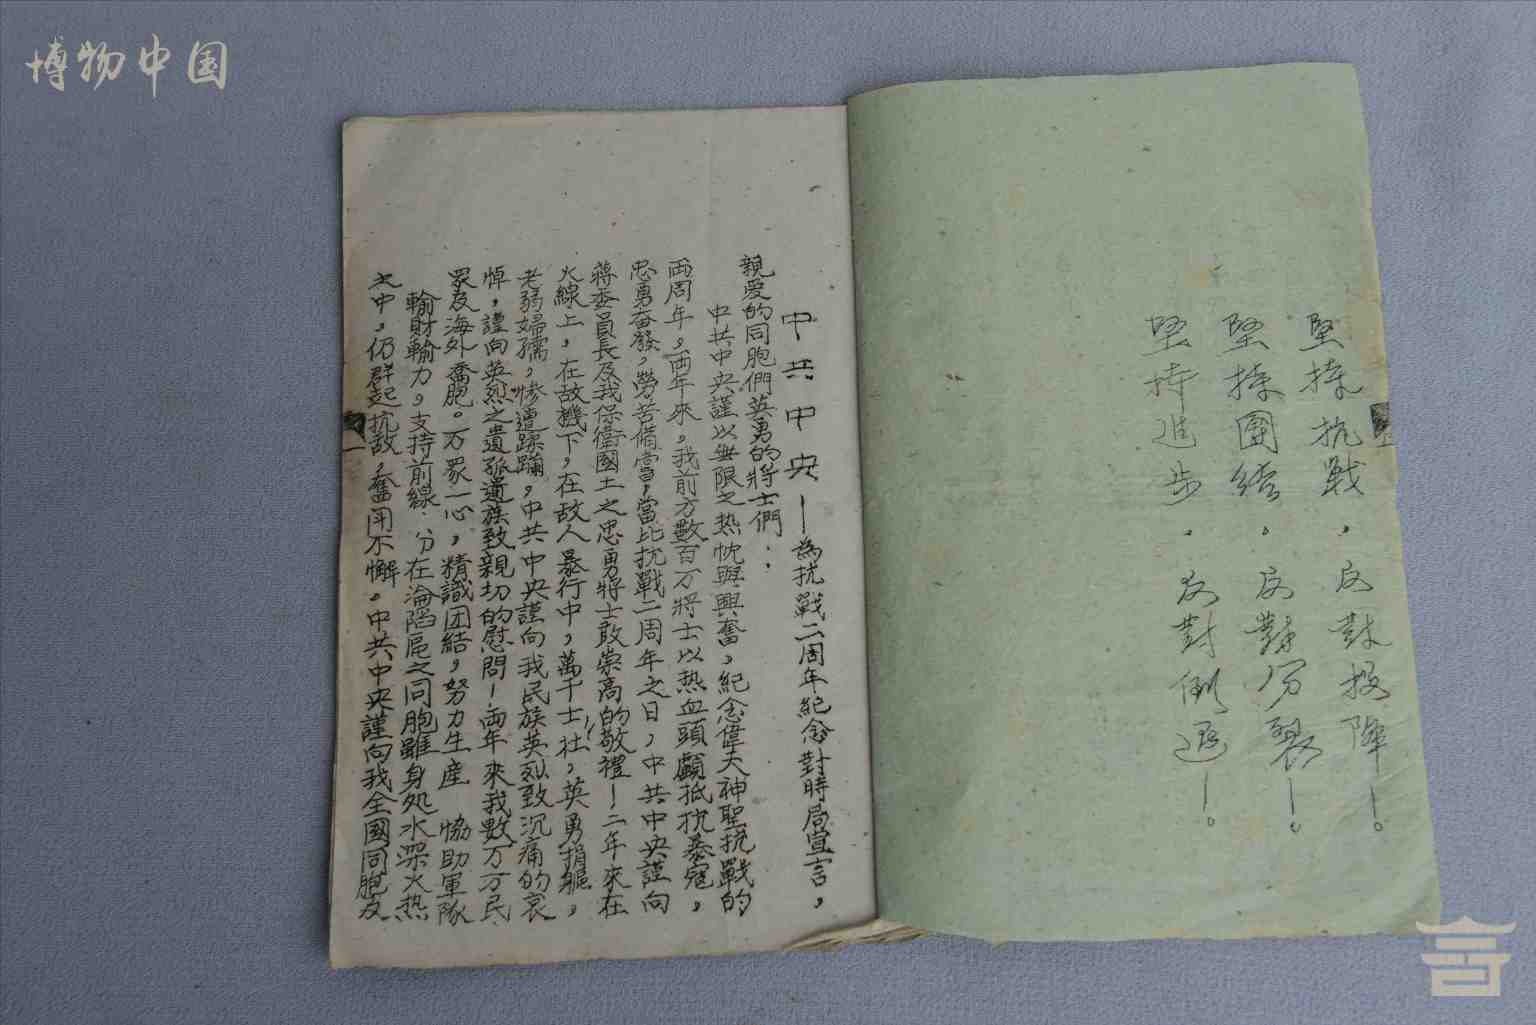 博物中国
堅持抗戰，反对投降！
堅持團結，反對分裂！
堅持進步，反對倒退！
中共中央—為抗戰二周年紀念對時局宣言，
親爱的同胞們英勇的將士們：
中共中央謹以無限之热忱與興奮，紀念偉大神聖抗戰的
两周年，両年來，我前方數百万將士以热血頭顱抵抗暴寇，
忠勇奋發，勞苦備嘗，當此抗戰二周年之日，中共中央謹向
蔣委員長及我保衛國土之忠勇將士致崇高的敬禮！二年來在
火線上，在敌機下，在敌人暴行中，萬千士壮，英勇捐軀，
老弱婦孺，慘遭蹂躪，中共中央謹向我民族英烈致沉痛的哀
悼，謹向英烈之遺孤遺族致親切的慰問！両年來我數万万民
眾及海外喬胞。万眾一心，精誠团結，努力生產 協助軍隊
輸財輸力，支持前線，分在淪陷區之同胞雖身処水深火热
之中，仍群起抗敌，奮鬥不懈。中共中央謹向我全國同胞及
一